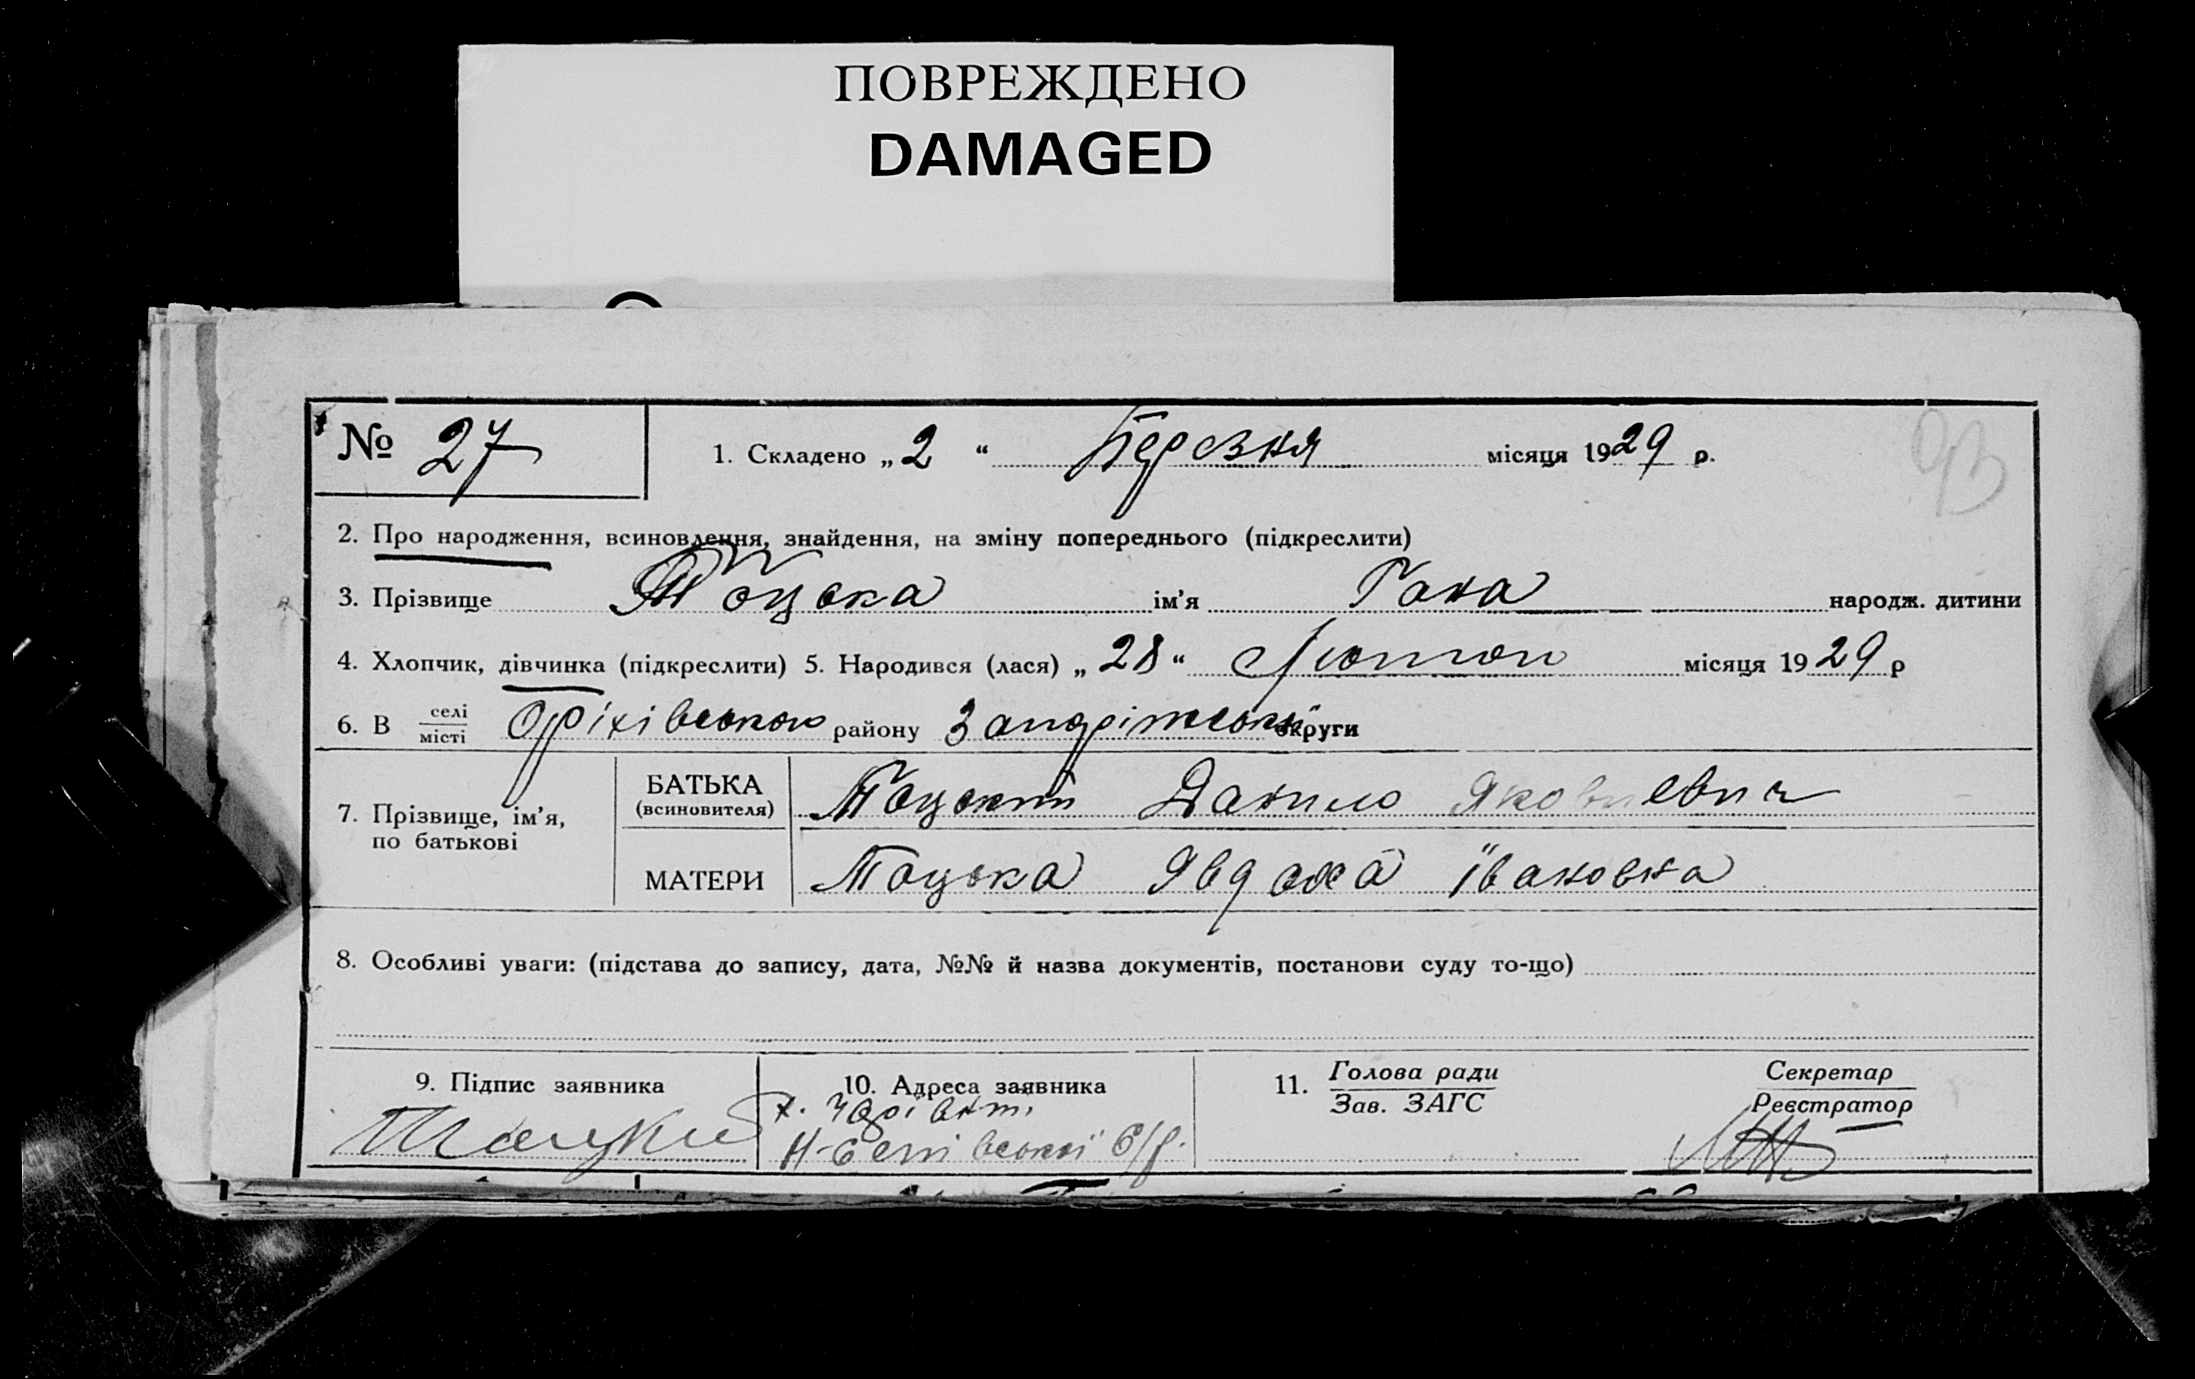 ПОВРЕЖДЕНО
DAMAGED
№ 27
1. Складено „ 2 “ Березня місяця 1929 р.
93
2. Про народження, всиновлення, знайдення, на зміну попереднього (підкреслити)
3. Прізвище Тоцька ім’я Гана народж. дитини
4. Хлопчик, дівчинка (підкреслити) 5. Народився (лася) „ 28 “ місяця 1929 р
6. В селі місті Оріхівського району Запоріжської округи
7. Прізвище, ім’я, по батькові
БАТЬКА (всиновителя) Тоцький Данило Якович
МАТЕРИ Тоцька Явдоха Івановна
8. Особливі уваги: (підстава до запису, дата, №№ й назва документів, постанови суду то-що)
9. Підпис заявника
10. Адреса заявника
х.
с/р.
11. Голова ради Зав. ЗАГС
Секретар Реєстратор